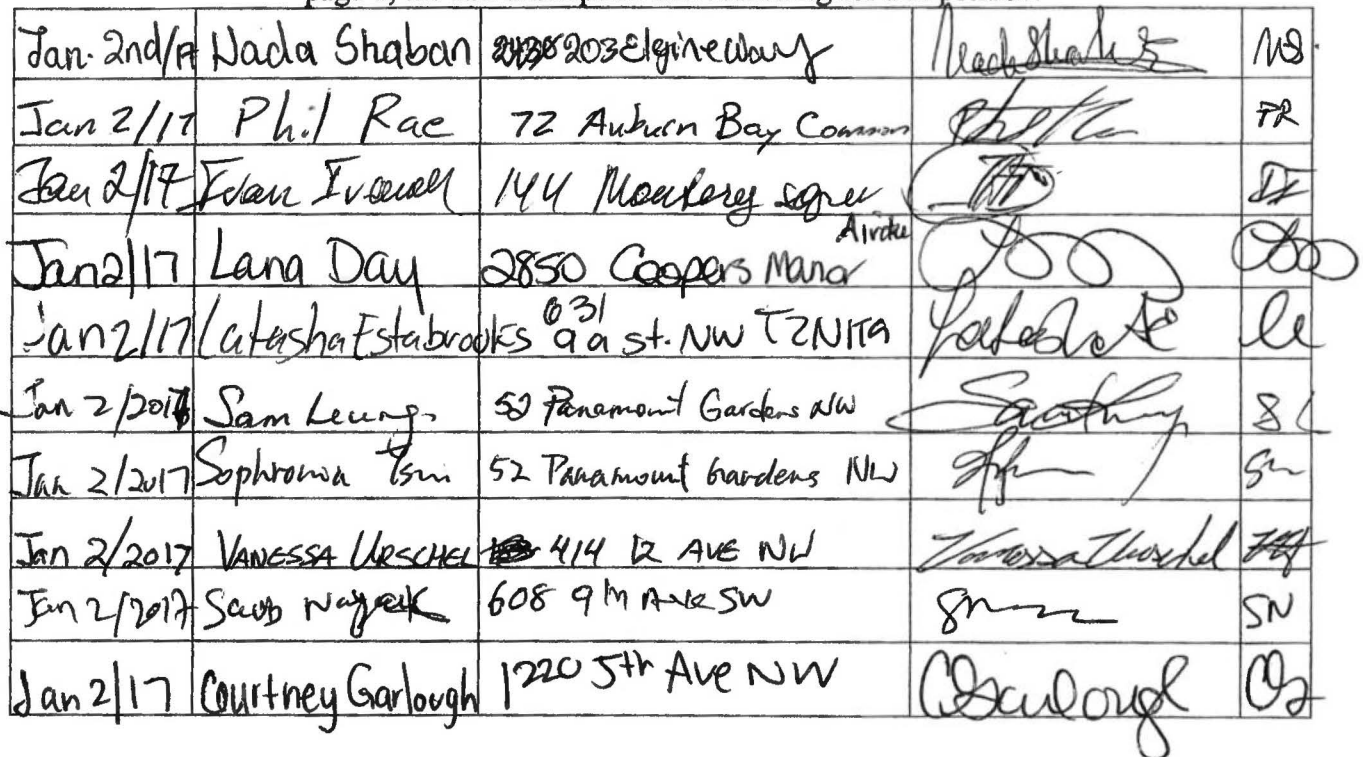 Jan. 2nd/17 Nada Shaban 203 Elgine way NS.
Jan 2/17 Phil Rae 72 Auburn Bay Common PR
Jan 2/17 Ivan 144 II
Airdrie
Jan 2/17 Lana Day 2850 Coopers Manor
631
Jan 2/17 Latasha Estabrooks 9a st. NW T2N1T9 le
Jan 2/2017 Sam Leung 52 Panamount Gardens NW SL
Jan 2/2017 Sophronia Tsui 52 Panamount Gardens NW
Jan 2/2017 VANESSA URSCHEL 414 12 AVE NW Vanessa Urschel
Jan 2/2017 Nayak 608 9th Ave SW SN
Jan 2/17 Courtney Garlough 1220 5th Ave NW CGarlough CG